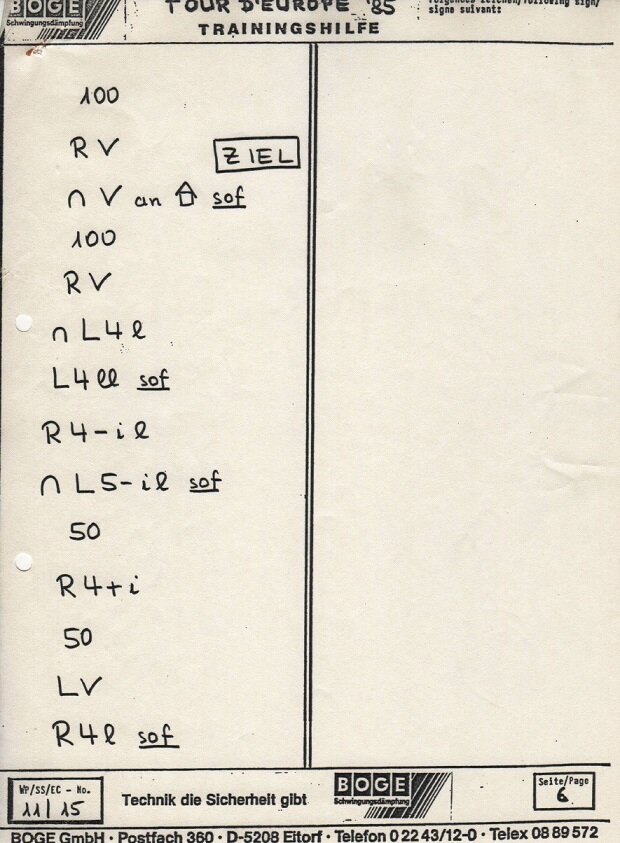 BOGE
Schwingungsdämpfung
TOUR D'EUROPE '85
TRAININGSHILFE
signe suivant:
100
R V
ZIEL
∩ V an ⇧ sof
100
R V
∩ L4 l
L4 ll sof
R 4 - i l
∩ L5 - i l sof
50
R 4 + i
50
L V
R 4 l sof
WP/SS/EC - No.
11/15
Technik die Sicherheit gibt
BOGE
Schwingungsdämpfung
Seite/Page
6
BOGE GmbH · Postfach 360 · D-5208 Eitorf · Telefon 0 22 43/12-0 · Telex 08 89 572